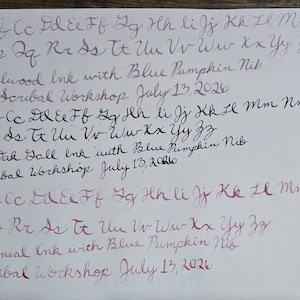 Cc Dd Ee Ff Gg Hh Ii Jj Kk Ll M
Qq Rr Ss Tt Uu Vv Ww Xx Yy
Ink with Blue Pumpkin Nib
Scribal Workshop July 13, 2026
Cc Dd Ee Ff Gg Hh Ii Jj Kk Ll Mm Nn
Ss Tt Uu Vv Ww Xx Yy Zz
Oak Gall Ink with Blue Pumpkin Nib
bal Workshop July 13, 2026
Cc Dd Ee Ff Gg Hh Ii Jj Kk Ll M
Rr Ss Tt Uu Vv Ww Xx Yy Zz
Ink with Blue Pumpkin Nib
ibal Workshop July 13, 2026